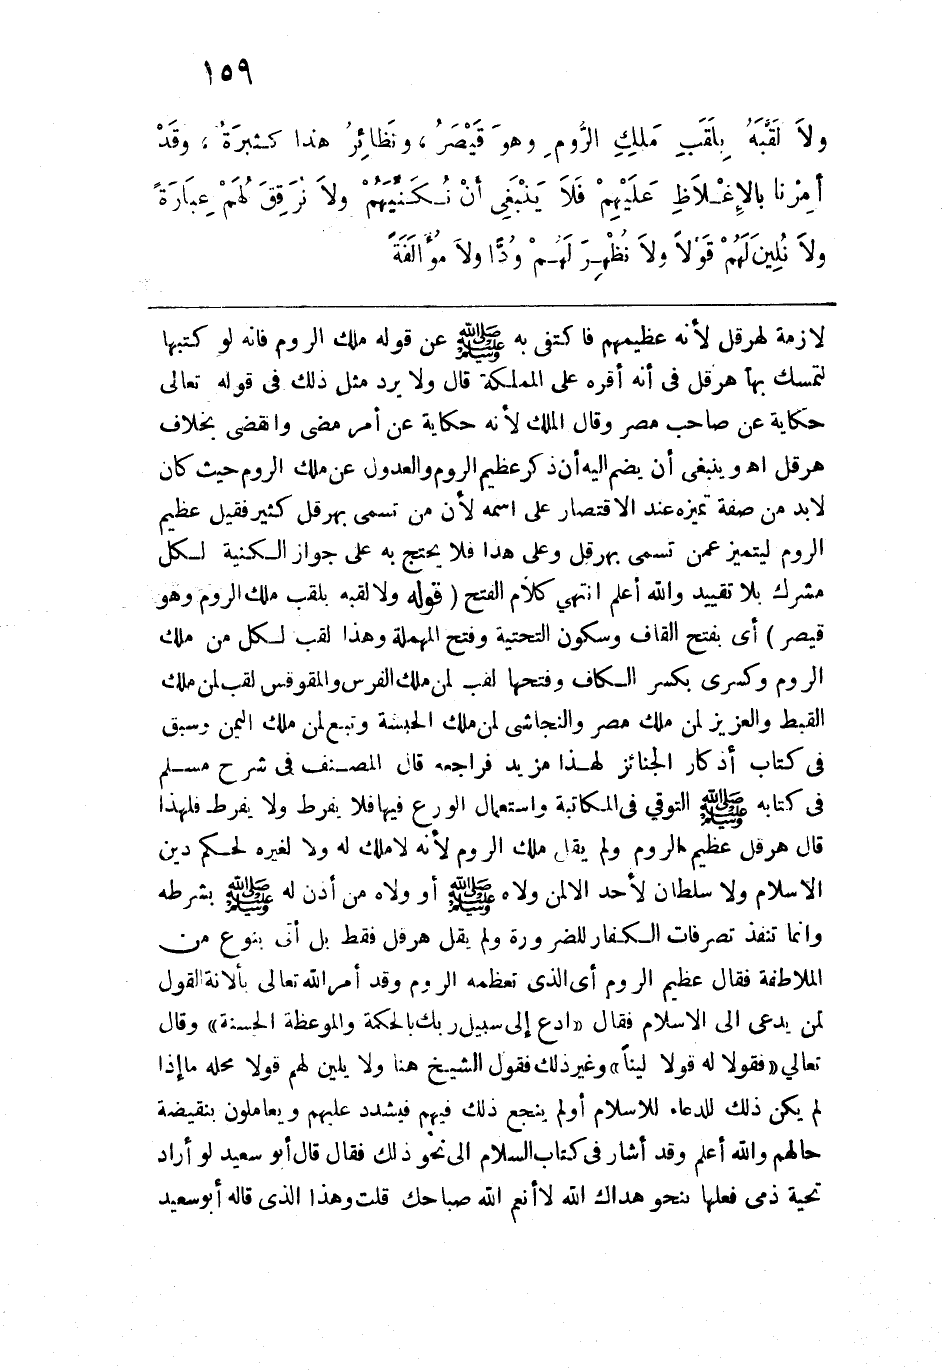 ١٥٩
ولاَ لَقَّبَهُ بِلَقَبِ مَلِكِ الرُّومِ وهوَ قَيْصَرُ ، ونَظائِرُ هذا كـثيرَةٌ ، وقَدْ
أُمِرْنا بالإِغْـلاَظِ عَلَيْهِمْ فَلَا يَنْبَغِى أَنْ نُـكَـنِّيَهُمْ ولاَ نُرَقِّقَ لَهُمْ عِبَارَةً
ولاَ نُلِينَ لَهُمْ قَوْلاً ولاَ نُظْهِـرَ لَهُـمْ وُدًّا ولاَ مُؤَالَفَةً
لازمة لهرقل لأنه عظيمهم فاكتفى به ﷺ عن قوله ملك الروم فانه لو كتبها
لتمسك بها هرقل فى أنه أقره على المملكة قال ولا يرد مثل ذلك فى قوله تعالى
حكاية عن صاحب مصر وقال الملك لأنه حكاية عن أمر مضى وانقضى بخلاف
هرقل اه وينبغى أن يضم اليه أن ذكر عظيم الروم والعدول عن ملك الروم حيث كان
لابد من صفة تميزه عند الاقتصار على اسمه لأن من تسمى بهرقل كثير فقيل عظيم
الروم ليتميز عمن تسمى بهرقل وعلى هذا فلا يحتج به على جواز الـكنية لـكل
مشرك بلا تقييد والله أعلم انتهي كلام الفتح ( قوله ولا لقبه بلقب ملك الروم وهو
قيصر ) أى بفتح القاف وسكون التحتية وفتح المهملة وهذا لقب لـكل من ملك
الروم وكسرى بكسر الـكاف وفتحها لقب لمن ملك الفرس والمقوقس لقب لمن ملك
القبط والعزيز لمن ملك مصر والنجاشى لمن ملك الحبشة وتبع لمن ملك اليمن وسبق
فى كتاب أذكار الجنائز لهـذا مزيد فراجعه قال المصـنف فى شرح مسـلم
فى كتابه ﷺ التوقي فى المكاتبة واستعمال الورع فيها فلا يفرط ولا يفرط فلهذا
قال هرقل عظيم الروم ولم يقل ملك الروم لأنه لا ملك له ولا لغيره لحـكم دين
الاسلام ولا سلطان لأحد الا لمن ولاه ﷺ أو ولاه من أذن له ﷺ بشرطه
وانما تنفذ تصرفات الـكفار للضرورة ولم يقل هرقل فقط بل أتى بنوع من
الملاطفة فقال عظيم الروم أى الذى تعظمه الروم وقد أمر الله تعالى بألانة القول
لمن يدعى الى الاسلام فقال «ادع إلى سبيل ربك بالحكمة والموعظة الحسنة» وقال
تعالي «فقولا له قولا ليناً» وغير ذلك فقول الشيخ هنا ولا يلين لهم قولا محله ما إذا
لم يكن ذلك للدعاء للاسلام أو لم ينجع ذلك فيهم فيشدد عليهم ويعاملون بنقيضة
حالهم والله أعلم وقد أشار فى كتاب السلام الى نحو ذلك فقال قال أبو سعيد لو أراد
تحية ذمى فعلها بنحو هداك الله لا أنعم الله صباحك قلت وهذا الذى قاله أبو سعيد